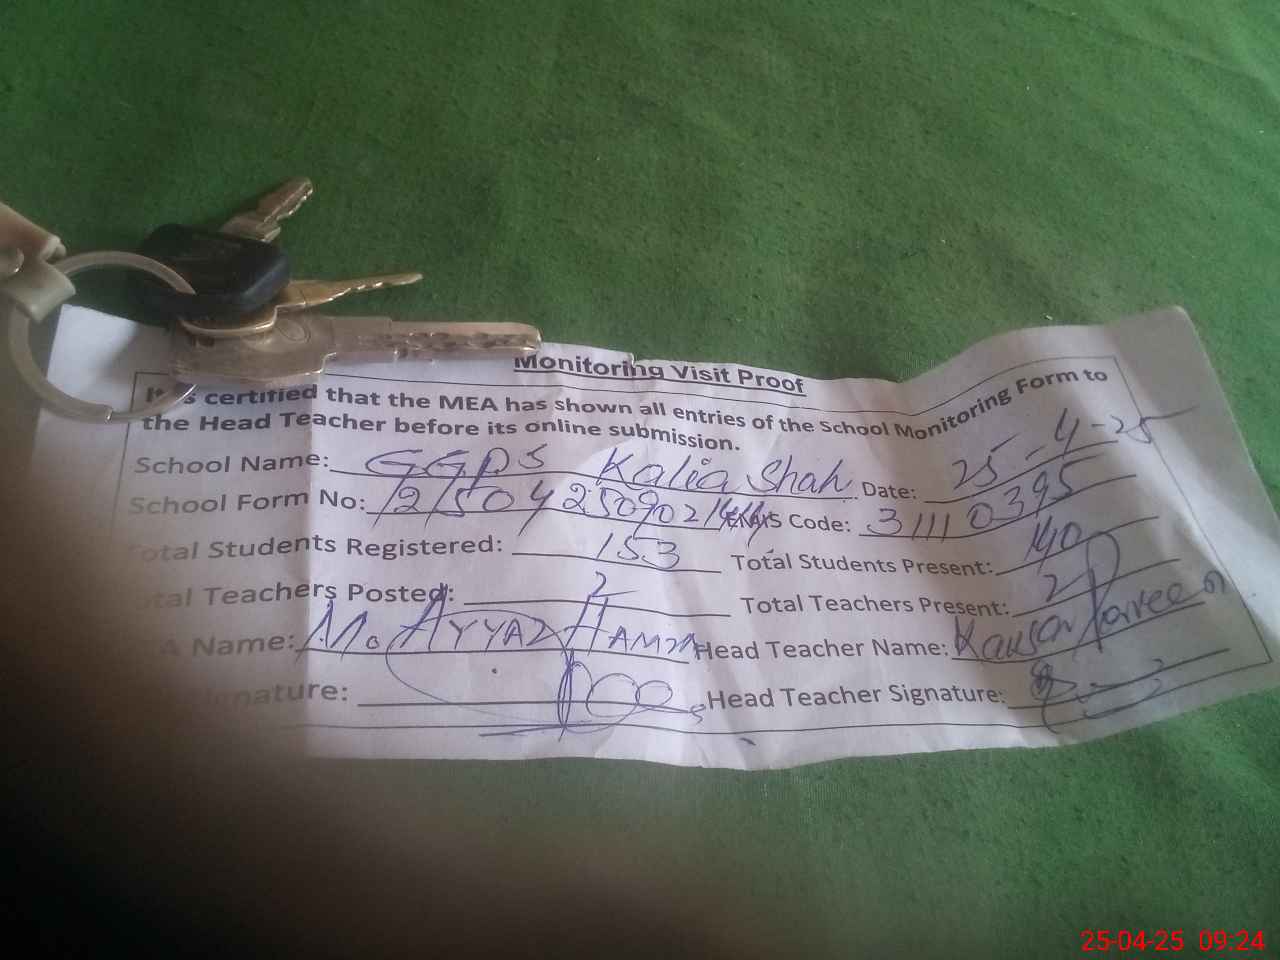 Monitoring Visit Proof
It is certified that the MEA has shown all entries of the School Monitoring Form to
the Head Teacher before its online submission.
School Name: GGPS Kalia Shah Date: 25-4-25
School Form No: Code: 31110395
Total Students Registered: 153 Total Students Present: 140
Total Teachers Posted: 2 Total Teachers Present: 2
A Name: M. AYYAZ HAMZA Head Teacher Name: Kausar Parveen
nature: Head Teacher Signature:
25-04-25 09:24